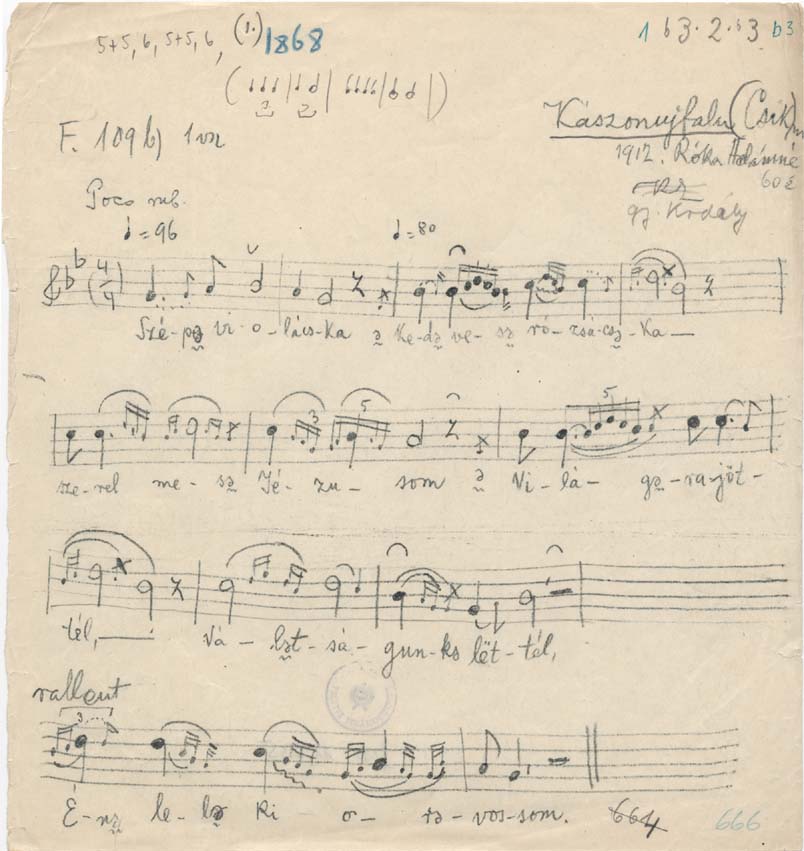 5+5, 6, 5+5, 6, (1.) 1868
1 b3 · 2 · b3 b3
F. 109 b) 1 vsz
Kászonujfalu (Csík) m
1912. Róka Ádámné
60 é
gy. Kodály
Poco rub.
= 96
= 80
4/4
Szé-pə vi-o-lács-ka ə ke-də ve-sə ró-zsá-csə-ka
3 5 5
sze-rel me-sə Jé-zu-som ə Vi-lá-gə-ra-jöt-
tél, vá-lət-sá-gun-ks lët-tél,
rallent
3
É-nə le-lə ki-o-rə-vos-som. 664 666